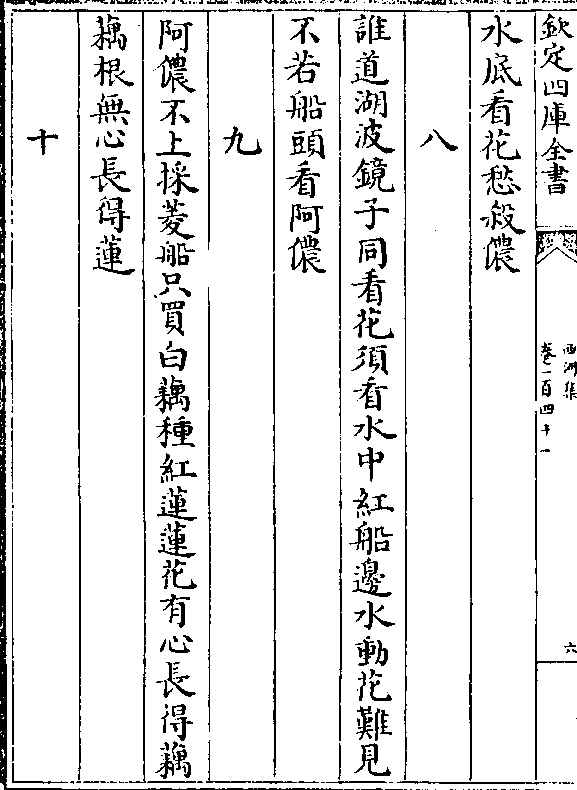 欽定四庫全書
西河集
卷一百四十一
六
水底看花愁殺儂
八
誰道湖波鏡子同看花須看水中紅船邊水動花難見
不若船頭看阿儂
九
阿儂不上採菱船只買白藕種紅蓮蓮花有心長得藕
藕根無心長得蓮
十